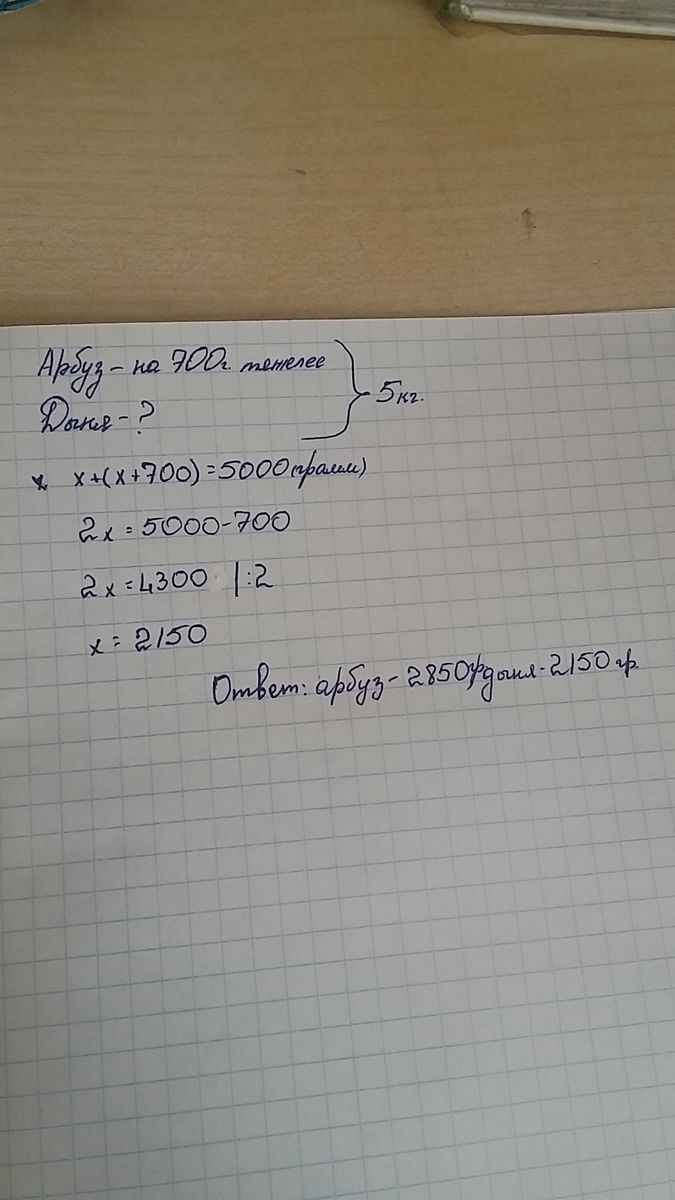 Арбуз - на 700г. тяжелее
Дыня - ?
5кг.
x x+(x+700)=5000(грамм)
2x=5000-700
2x=4300 |:2
x=2150
Ответ: арбуз-2850гр дыня-2150 гр.